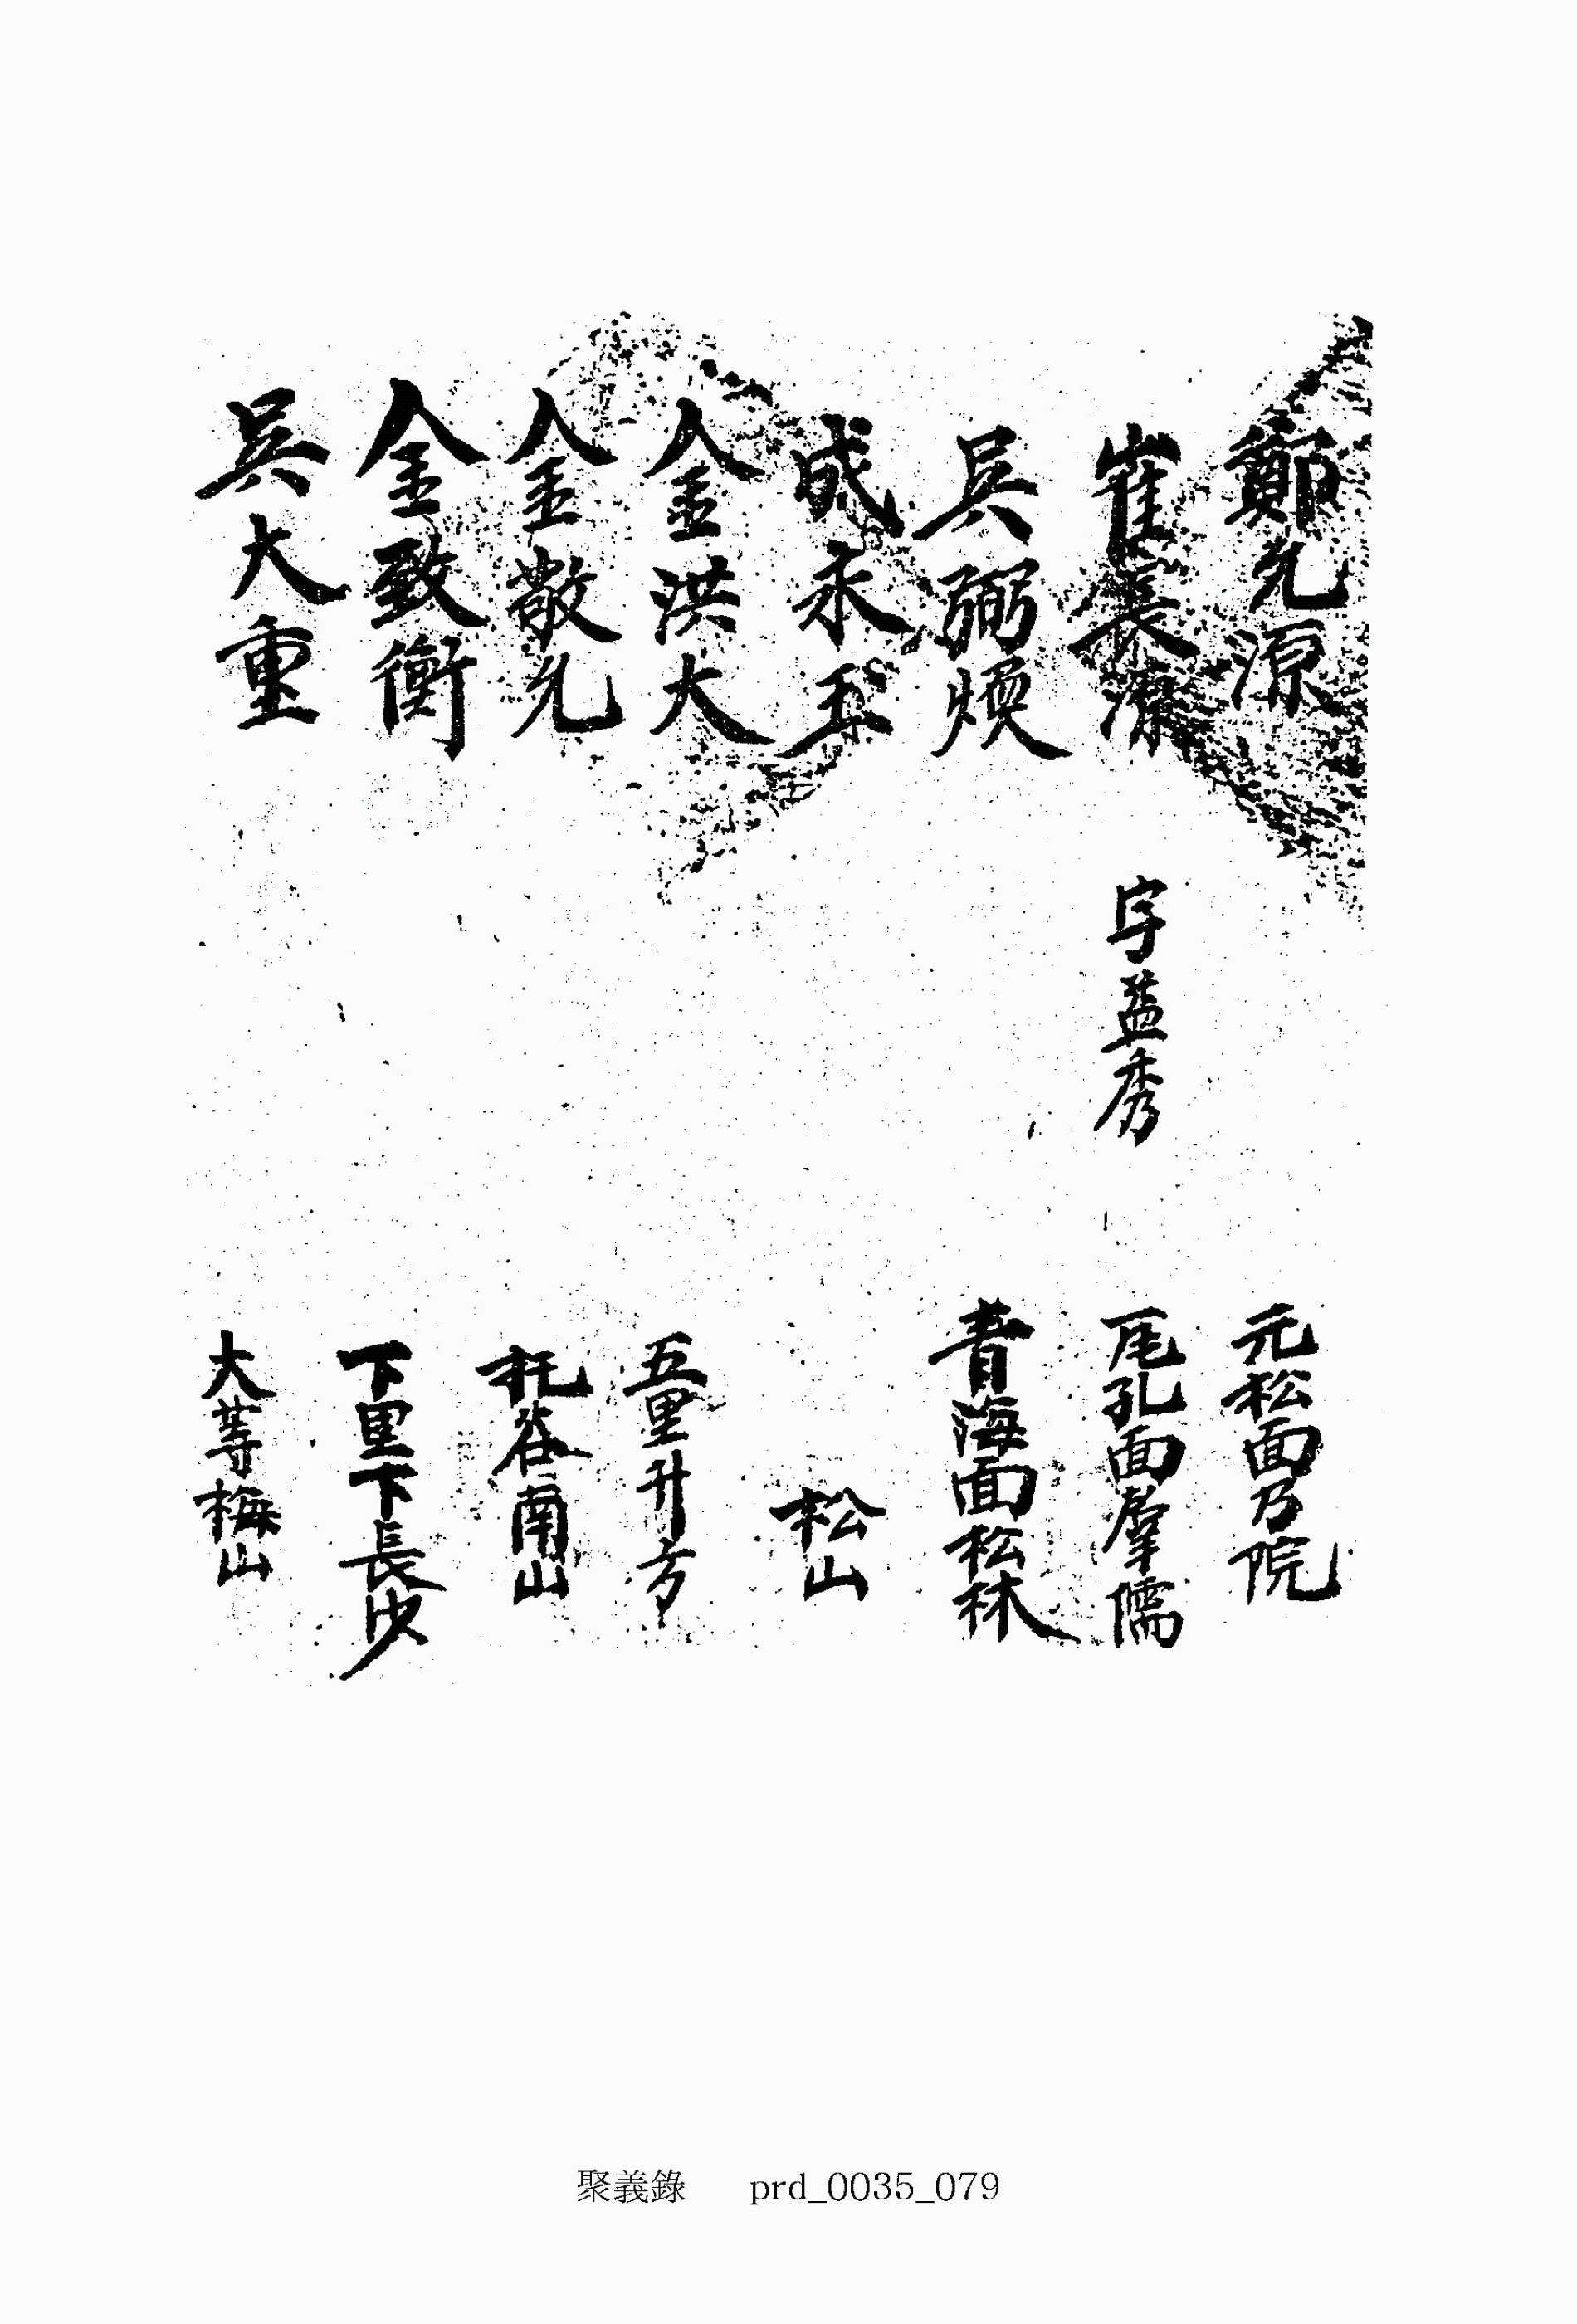 鄭允源 元松面乃院
崔長潦 字益秀 尾孔面羣儒
吳弼煥 青海面松林
成永玉 松山
金洪大 五里升方
金敬允 托谷南山
金致衡 下里下長沙
吳大重 大等梅山
聚義錄 prd_0035_079